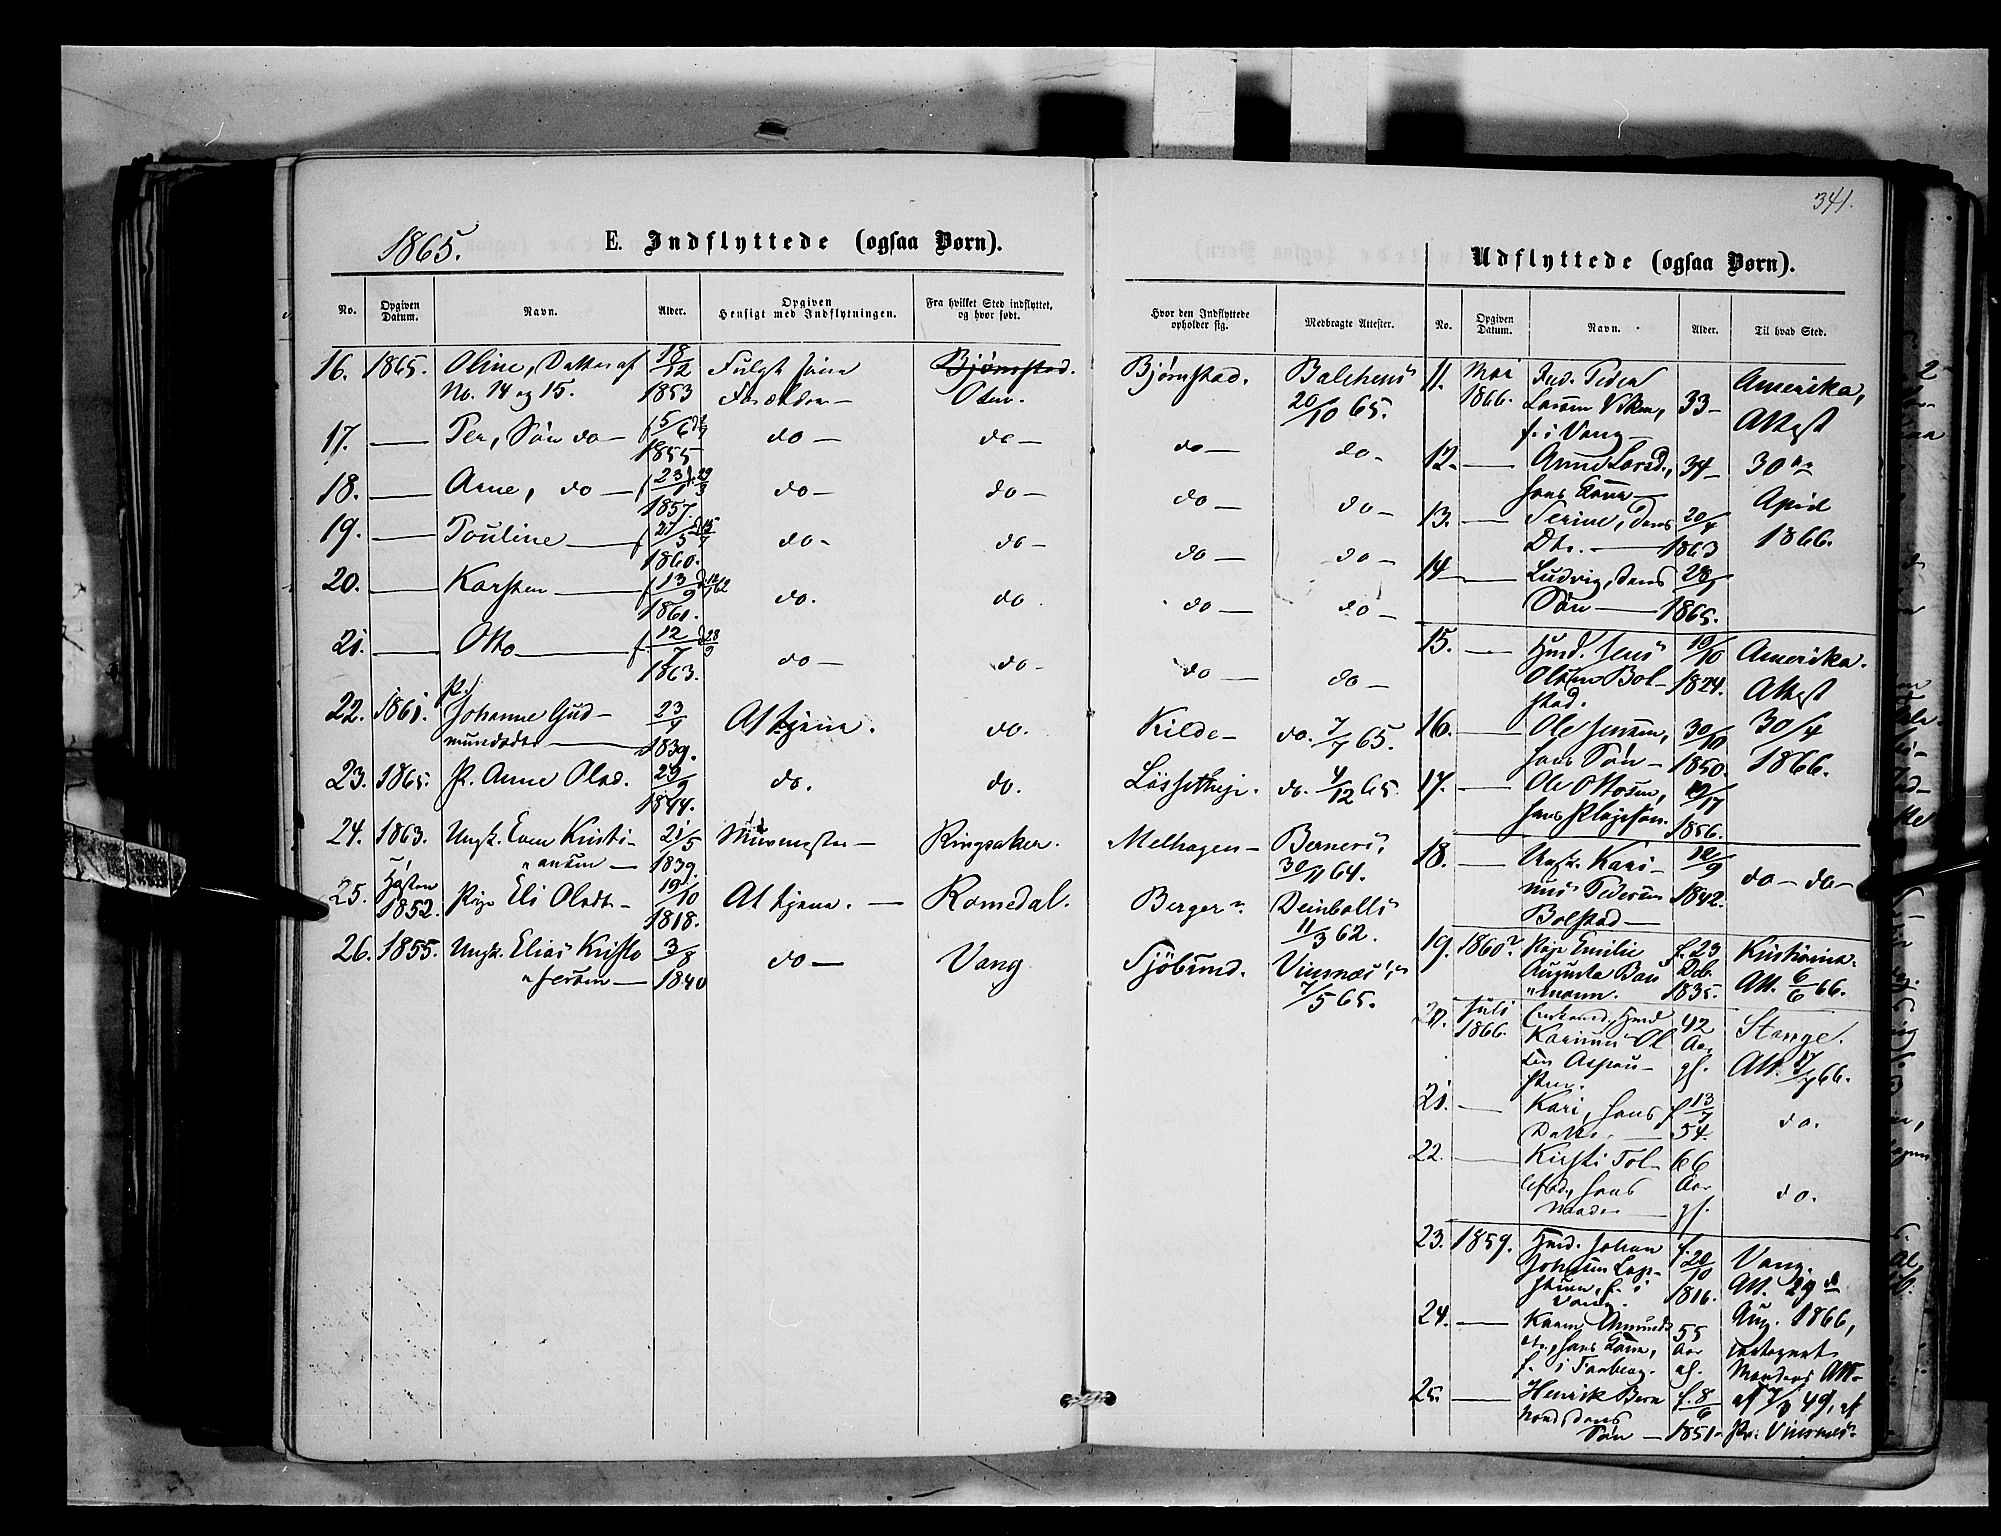 341.
1865.
E. Indflyttede (ogsaa Børn).
No. Opgiven Datum. Navn. Alder. Opgiven Hensigt med Indflytningen. Fra hvilket Sted indflyttet, og hvor født. Hvor den Indflyttede opholder sig. Medbragte Attester.
16. 1865. Oline, Datter af No. 14 og 15. 18/12 1853 Fulgt sine Forældre Bjørnstad. Bjørnstad. 20/10 65.
17. — Per, Søn do — 1855 do — do — do — do -
18. — Arne, do — 1857. do — do — do — do —
19. — Pouline — 1860. do - do — do — do —
20. — Karsten — 13/9 1861. do. do do — do —
21. — Otto — 1863. do — do - do — do —
22. 1861. P. Johanne Gudmundsdtr — 1839. At tjene. do. Kilde - do. 7/7 65.
23. 1865. P. Anne Olsd. 1844. do. do. do. 4/12 65
24. 1863. Ungk. Even Kristiansen — 21/5 1839 Ringsaker. Melhagen - 30/11 64.
25. Høsten 1852. Pige Eli Olsdtr - 19/10 1818. At tjene. — Romedal. Berger Deinbolls 11/3 62.
26. 1855. Ungk. Elias Kristoffersen — 3/8 1840 do — Vang Sjöbsund. Vinsnæs 7/5 65.
Udflyttede (ogsaa Børn).
No. Opgiven Datum. Navn. Alder. Til hvad Sted.
11. Mai 1866. Peder Larsen Viken, f. i Vang — 33 - Amerika, Attest
12. — Anne Larsd., hans Kone — 34 - 30te
13. — Serine, deres Dtr. — 20/4 1863 April 1866.
14 — Ludvig, deres Søn — 1865.
15. — Husmd. Jens Olsen Bolstad. 1824. Amerika. Attest
16. — Ole Jensen, hans Søn - 30/10 1850. 30/4
17. — Ole Ottosen, hans Plejesøn. 1856. 1866.
18. — Ungk. Karinus Pedersen Bolstad — 12/9 1842. do — do —
19. 1860? Pige Emilie Augusta f. 23 Deb. 1835. Kristiania. Att. 6/6 66.
20. Juli 1866. Karinus Olsen 42 Aar gl. Stange. Att. 66.
21. — Kari, hans Datter — f 13/7 54. do.
22. — Kirsti Tollefsd., hans Moder — 66 Aar gl. do.
23. 1859. Husmd. Johan Johnsen f. i Vang. f. 20/10 1816. Vang. Att. 29de Aug. 1866,
24. — Karen Amundsdtr., hans Kone, f. i Faaberg. 55 Aar gl. Mandens Att.
25. — Henrik Bernhard deres Søn — f. 8/6 1851 - af 49, af Pr. Vinsnæs